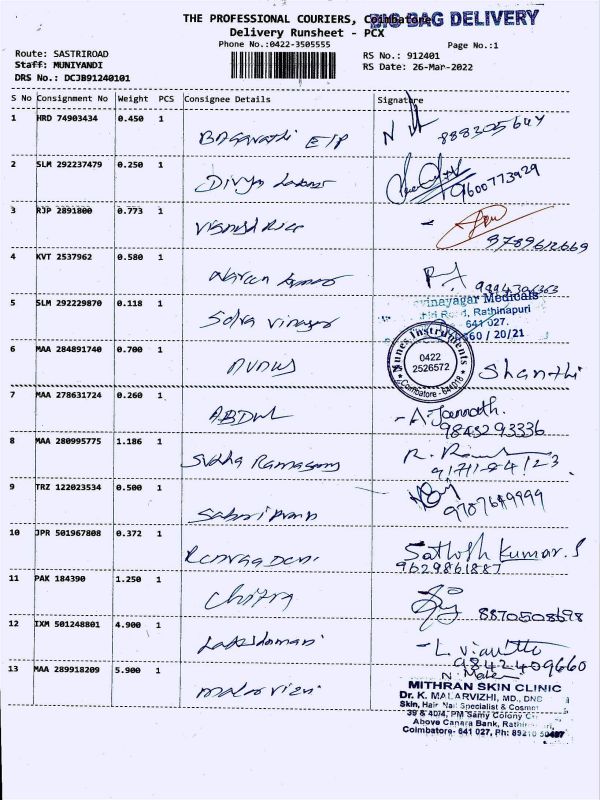 THE PROFESSIONAL COURIERS, Coimbatore
BIG BAG DELIVERY
Delivery Runsheet - PCX
Phone No.:0422-3505555
Page No.:1
Route: SASTRIROAD
Staff: MUNIYANDI
DRS No.: DCJB91240101
RS No.: 912401
RS Date: 26-Mar-2022
S No Consignment No Weight PCS Consignee Details Signature
1 HRD 74903434 0.450 1 888305644
2 SLM 292237479 0.250 1 Divya 9600773929
3 RJP 2891800 0.773 1 9789612669
4 KVT 2537962 0.580 1 Naveen Kumar
5 SLM 292229870 0.118 1 Selva Vinayagar
vinayagar Medicals
Rathinapuri
641 027.
60 / 20/21
6 MAA 284891740 0.700 1 Shanthi
Nunes Instruments
0422
2526572
Coimbatore - 641018
7 MAA 278631724 0.260 1 ABDUL A. Jannath.
9843293336
8 MAA 280995775 1.186 1 Sudha Ramasamy
9 TRZ 122023534 0.500 1
10 JPR 501967808 0.372 1 Renuga Devi Sathosh Kumar.S
9629861887
11 PAK 184390 1.250 1 Chitra 8870508698
12 IXM 501248801 4.900 1
9842409660
13 MAA 289918209 5.900 1 malarvizhi
MITHRAN SKIN CLINIC
Dr. K. MALARVIZHI, MD., DNB
Skin, Hair Nail Specialist & Cosmet
39 & 40/4, PM Samy Colony
Above Canara Bank,
Coimbatore- 641 027, Ph: